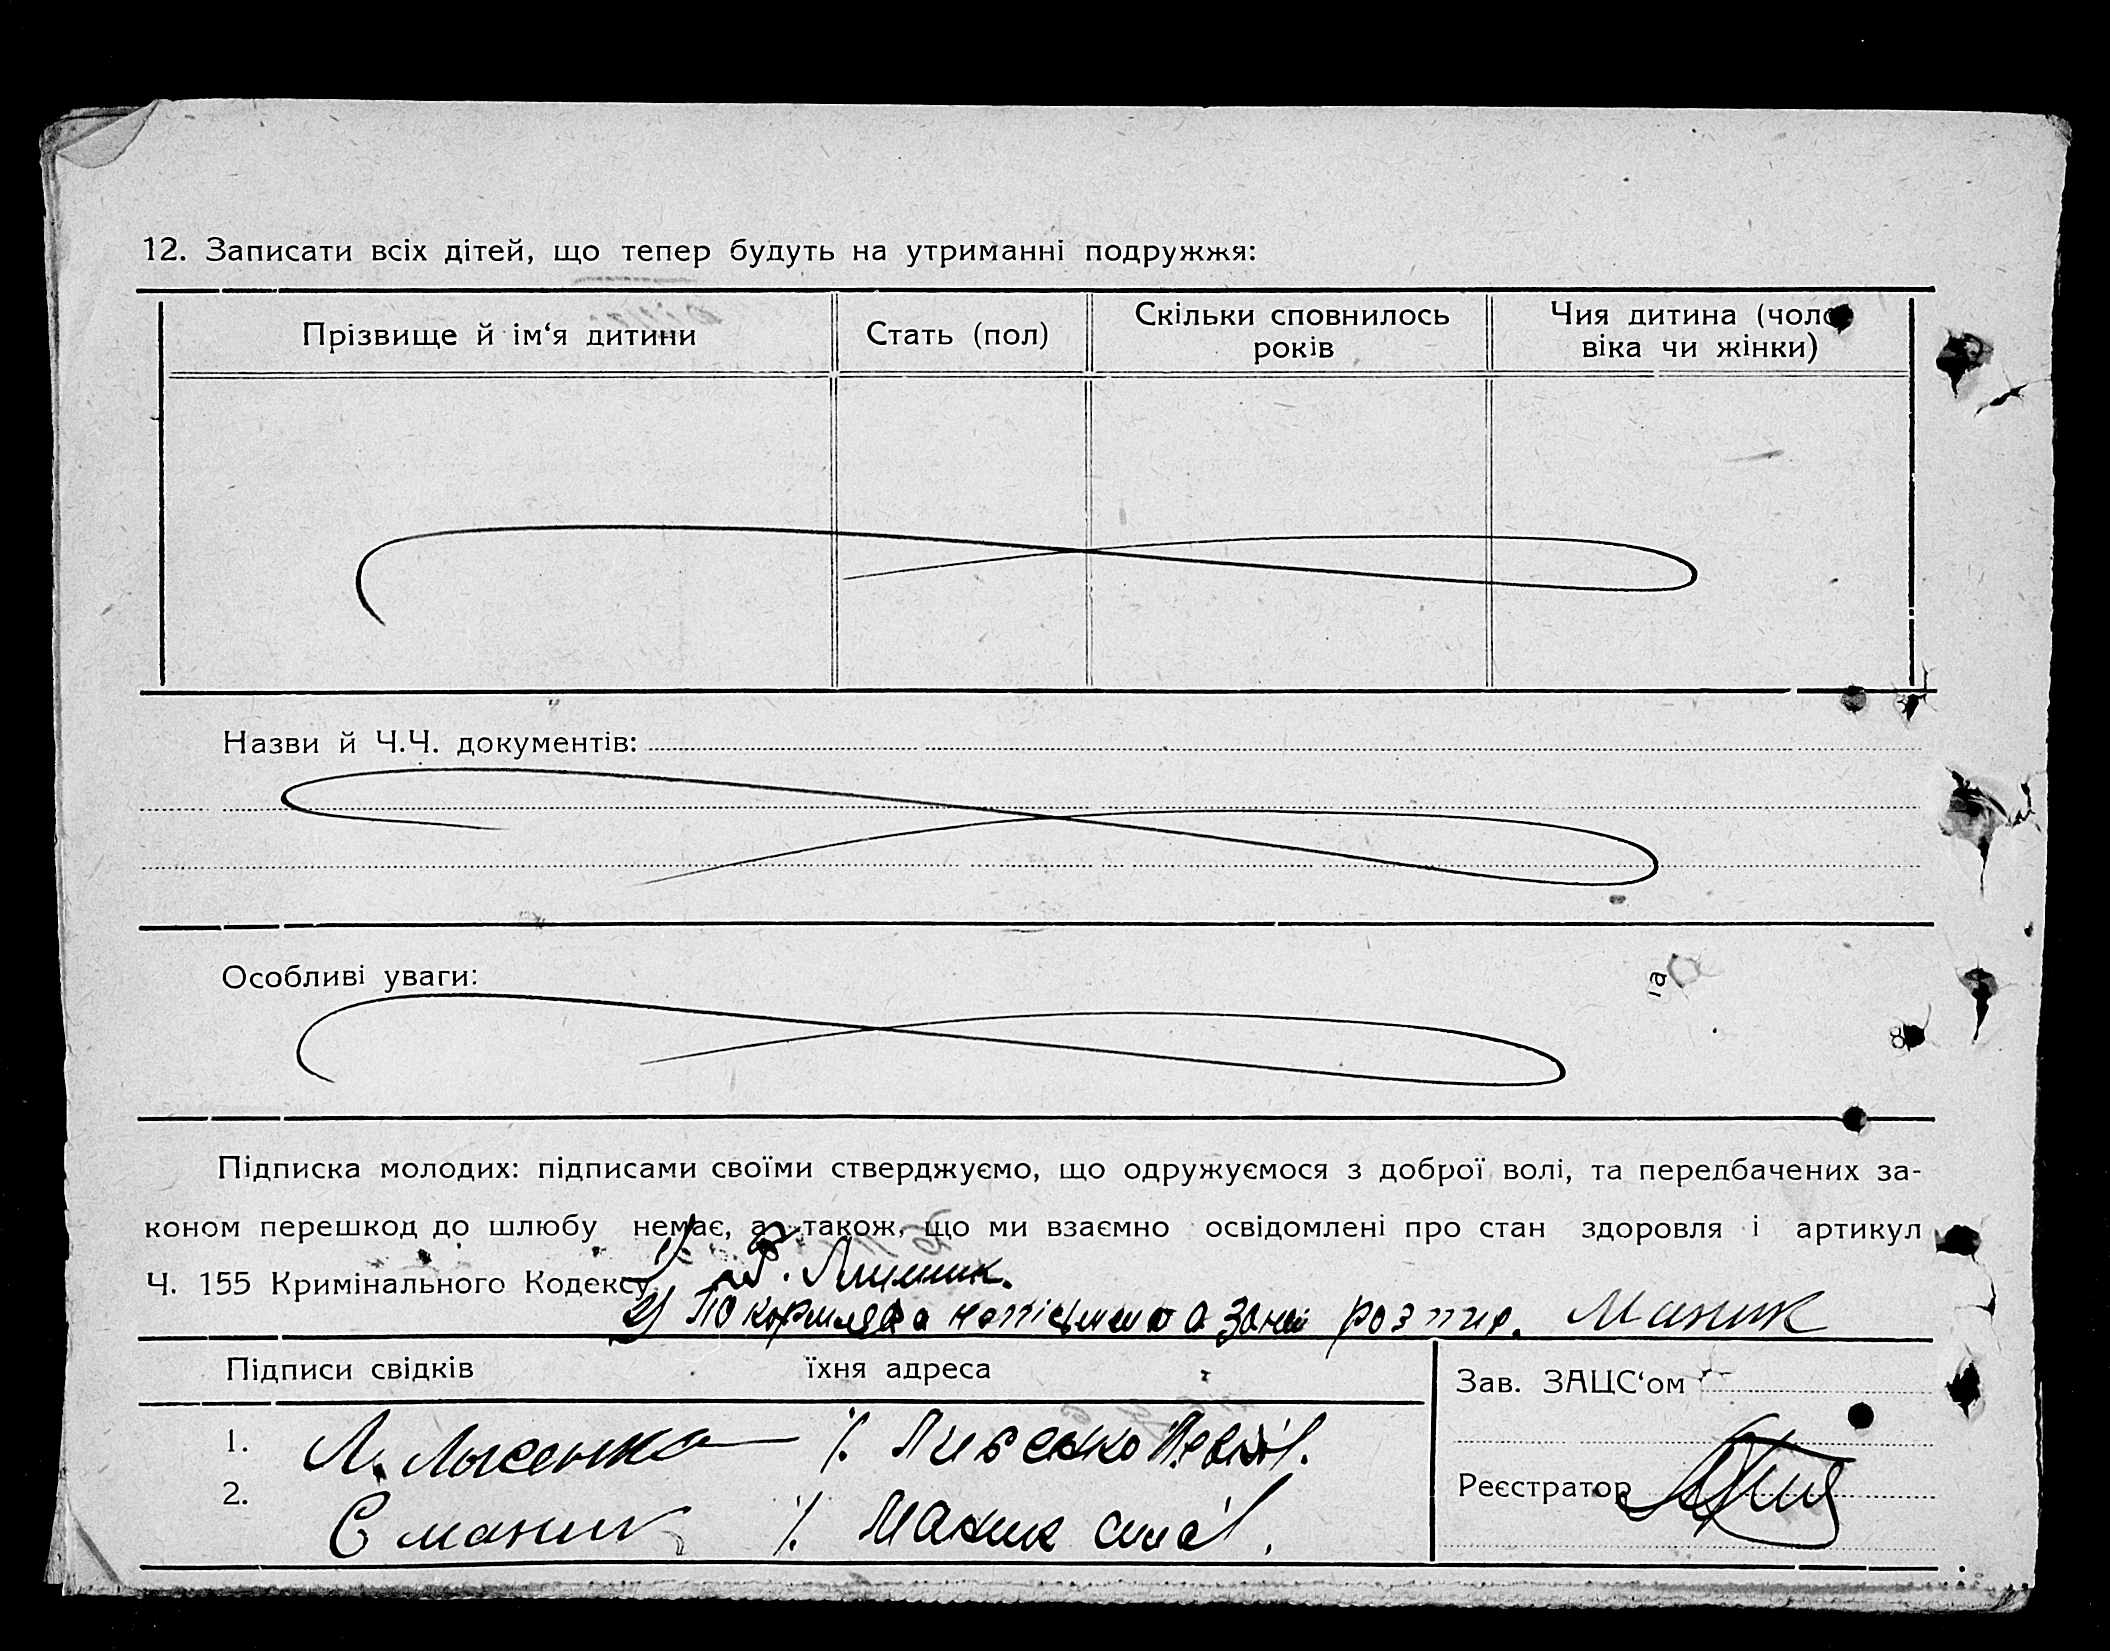 12. Записати всіх дітей, що тепер будуть на утриманні подружжя:
Прізвище й ім‘я дитини
Стать (пол)
Скільки сповнилось
років
Чия дитина (чоло
віка чи жінки)
Назви й Ч.Ч. документів:
Особливі уваги:
Підписка молодих: підписами своїми стверджуємо, що одружуємося з доброї волі, та передбачених за-
коном перешкод до шлюбу немає, а також, що ми взаємно освідомлені про стан здоровля і артикул
Ч. 155 Кримінального Кодексу
1)
2) розпис. Маник
Підписи свідків
їхня адреса
Зав. ЗАЦС‘ом
1. Л. Лысенко
2. С Маник /. Маник
Реєстратор